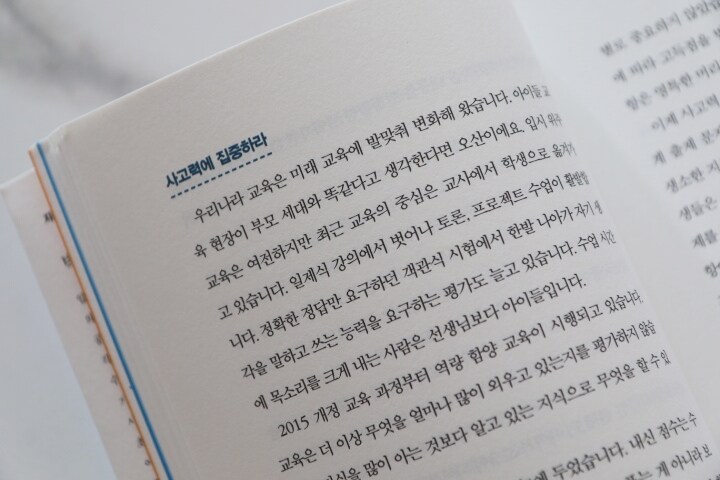 사고력에 집중하라
우리나라 교육은 미래 교육에 발맞춰 변화해 왔습니다. 아이들 교
육 현장이 부모 세대와 똑같다고 생각한다면 오산이에요. 입시 위주
교육은 여전하지만 최근 교육의 중심은 교사에서 학생으로 옮겨가
고 있습니다. 일제식 강의에서 벗어나 토론, 프로젝트 수업이 활발합
니다. 정확한 정답만 요구하던 객관식 시험에서 한발 나아가 자기 생
각을 말하고 쓰는 능력을 요구하는 평가도 늘고 있습니다. 수업 시간
에 목소리를 크게 내는 사람은 선생님보다 아이들입니다.
2015 개정 교육 과정부터 역량 함양 교육이 시행되고 있습니다.
교육은 더 이상 무엇을 얼마나 많이 외우고 있는지를 평가하지 않습
지식을 많이 아는 것보다 알고 있는 지식으로 무엇을 할 수 있
에 두었습니다. 내신 점수는 수
또는 게 아니라 보
별로 중요하지 않았
에 따라 고득점을
항은 영특한 머리
이제 사고력
게 출제
생소한
생들은
제를